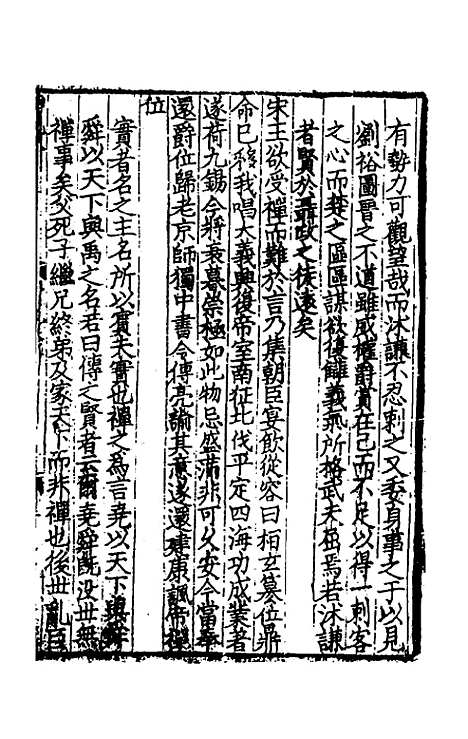 有勢力可觀望哉而沐謙不忍刺之又委身事之于以見
劉裕圖晉之不道雖威權爵賞在己而不足以得一刺客
之心而楚之區區謀欲復讎義氣所格武夫屈焉若沐謙
者賢於聶政之徒遠矣
宋王欲受禪而難於言乃集朝臣宴飲從容曰桓玄墓位鼎
命已移我唱大義興復帝室南征北伐平定四海功成業著
遂荷九錫今將衰暮崇極如此物忌盛滿非可久安今當奉
還爵位歸老京師獨中書令傅亮諭其意遂還建康諷帝禪
位
實者名之主名所以賓夫實也禪之為言堯以天下與舜
舜以天下與禹之名若曰傳之賢者云爾堯舜旣没丗無
禪事矣父死子繼兄終弟及家天下而非禪也後丗亂臣